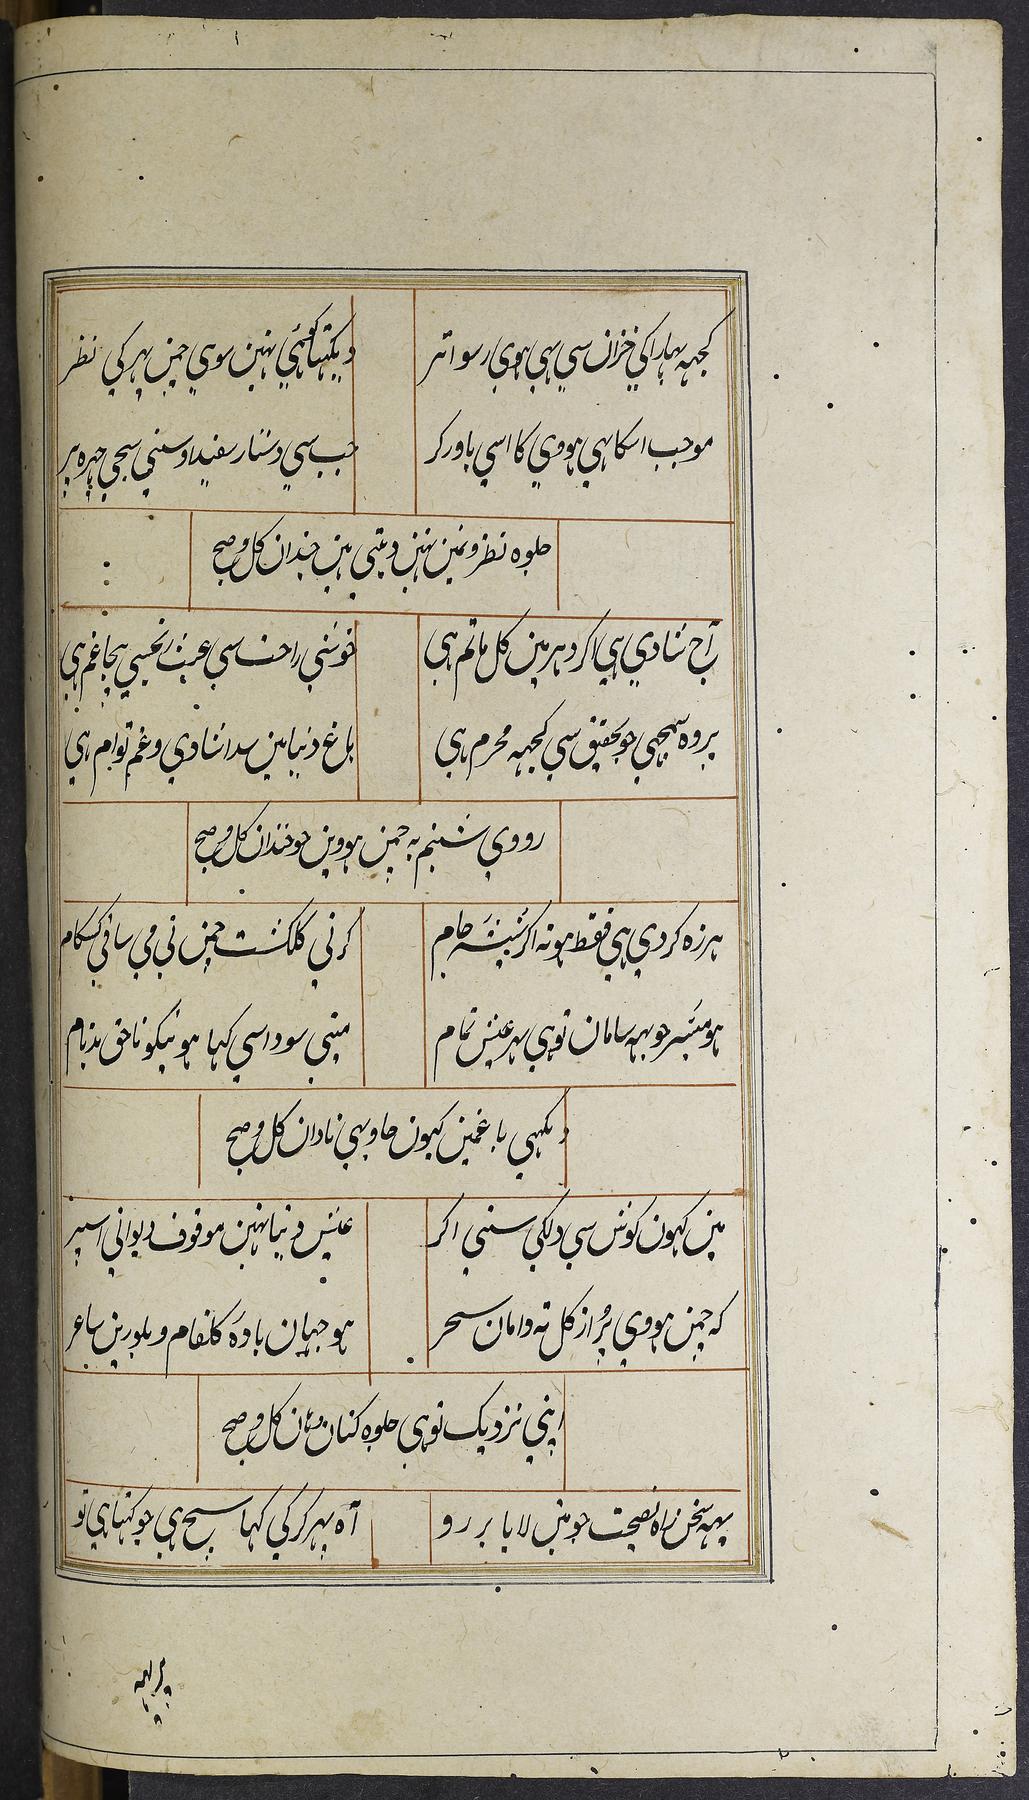 کجهہ بہار اکی خزان سی ہی ہوی رسوا تر دیکہتا کوئی نہین سوی چمن بہر کی نظر
موجب اسکا ہی ہووی کا اسی باور کر جب سی دستار سفید اوسنی سجی چہرہ پر
جلوہ نظرونمین نہین دیتی ہین چندان کل و صبح
آج شادی ہی اکر دہر مین کل ماتم ہی خوشنی راحت سی عبث بیجا غم ہی
پر وہ سمجہی جو تحقیق سی کجہہ محرم ہی باغ دنیا مین سدا شادی و غم توام ہی
رووی شبنم بہ چمن ہووین جو خندان کل و صبح
ہرزہ کردی ہی فقط ہو نہ اکر شیشہ جام کرنی کلکشت چمن بی می ساقی کسکام
ہو میسر جو یہہ سامان تو ہی بہر عیش تمام مینی سودا سی کہا ہو نیکو ناحق بدنام
دیکہنی باغمین کیون جاوہی نادان کل و صبح
مین کہون کوش سی دلکی سنی اکر عیش دنیا نہین موقوف دیوانی اسپر
کہ چمن ہووی پُر از کل تہ دامان سحر ہو جہان بادۂ کلفام و بلورین ساغر
اپنی نزدیک تو ہی جلوہ کنان وہان کل و صبح
یہہ سخن راہ نصیحت جو مین لایا بر رو آہ بہر کر کی کہا سچ ہی جو کہتا ہی تو
پر یہہ